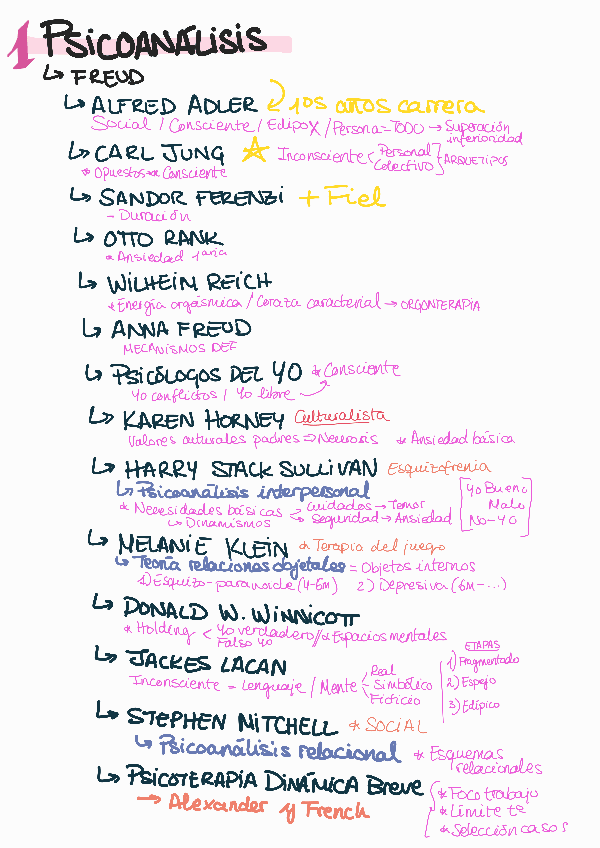 1 PSICOANÁLISIS
↳ FREUD
↳ ALFRED ADLER ↙ 10s años carrera
Social / Consciente / Edipo X / Persona = TODO → Superación inferioridad
↳ CARL JUNG ☆ Inconsciente < Personal Colectivo } ARQUETIPOS
* Opuestos → Consciente
↳ SANDOR FERENZI + Fiel
- Duración
↳ OTTO RANK
* Ansiedad 1aria
↳ WILHEIM REICH
* Energía orgásmica / Coraza caracterial → ORGONTERAPIA
↳ ANNA FREUD
MECANISMOS DEF
↳ PSICÓLOGOS DEL YO * Consciente
Yo conflictos / Yo libre
↳ KAREN HORNEY Culturalista
Valores culturales padres ⇒ Neurosis * Ansiedad básica
↳ HARRY STACK SULLIVAN Esquizofrenia
↳ Psicoanálisis interpersonal
* Necesidades básicas < Cuidados → Temor
Seguridad → Ansiedad
↳ Dinamismos
[Yo Bueno
Malo
No-Yo]
↳ MELANIE KLEIN * Terapia del juego
↳ Teoría relaciones objetales = Objetos internos
1) Esquizo-paranoide (4-6m) 2) Depresiva (6M-...)
↳ DONALD W. WINNICOTT
* Holding < Yo verdadero // * Espacios mentales
Falso yo
↳ JACKES LACAN
Inconsciente = Lenguaje / Mente < Real
Simbólico
Ficticio
ETAPAS
1) Fragmentado
2) Espejo
3) Edípico
↳ STEPHEN MITCHELL * SOCIAL
↳ Psicoanálisis relacional * Esquemas relacionales
↳ PSICOTERAPIA DINÁMICA Breve
→ Alexander y French
* Foco trabajo
* Límite tº
* Selección casos